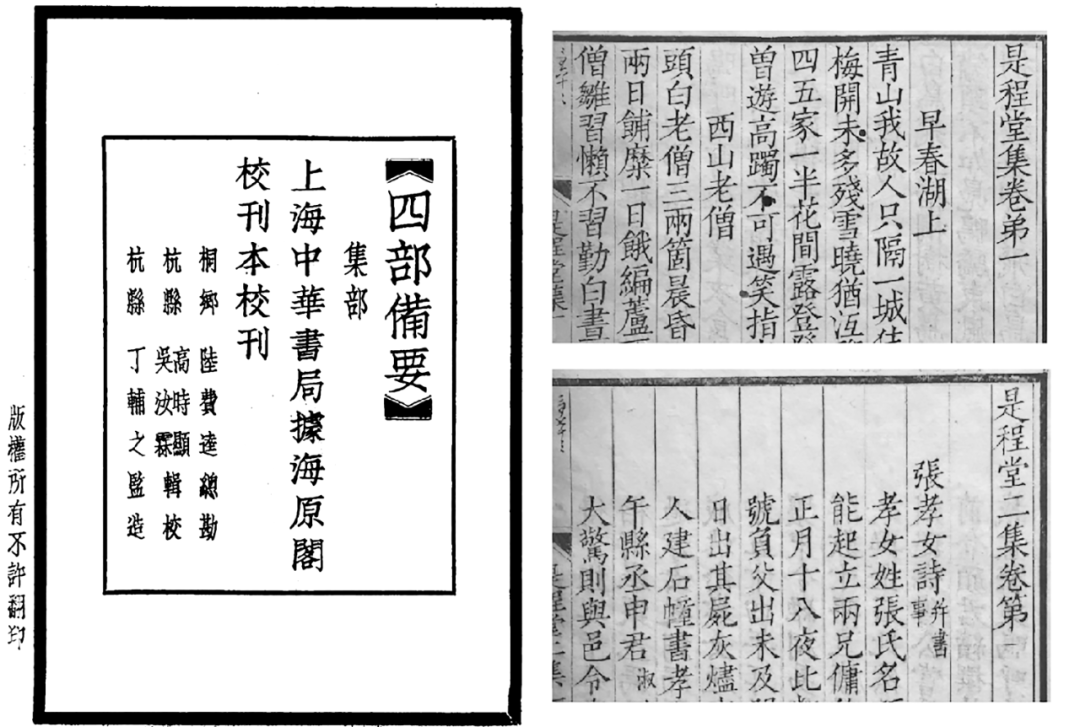 【四部備要】
集部
上海中華書局據海原閣
校刊本校刊
桐鄉 陸費逵總勘
杭縣 高時顯 吳汝霖 輯校
杭縣 丁輔之監造
版權所有不許翻印
是程堂集卷弟一
早春湖上
青山我故人只隔一城住
梅開未多殘雪曉猶沍
四五家一半花間露登登
曾遊高躅不可遇笑指
西山老僧
頭白老僧三兩箇晨昏
兩日餔糜一日餓編蘆
僧雛習懶不習勤白晝
是程堂集
是程堂二集卷第一
張孝女詩 并書事
孝女姓張氏名
能起立兩兄傭
正月十八夜比
號負父出未及
日出其屍灰燼
人建石幢書孝
午縣丞申君 淑
大驚則與邑令
是程堂二集